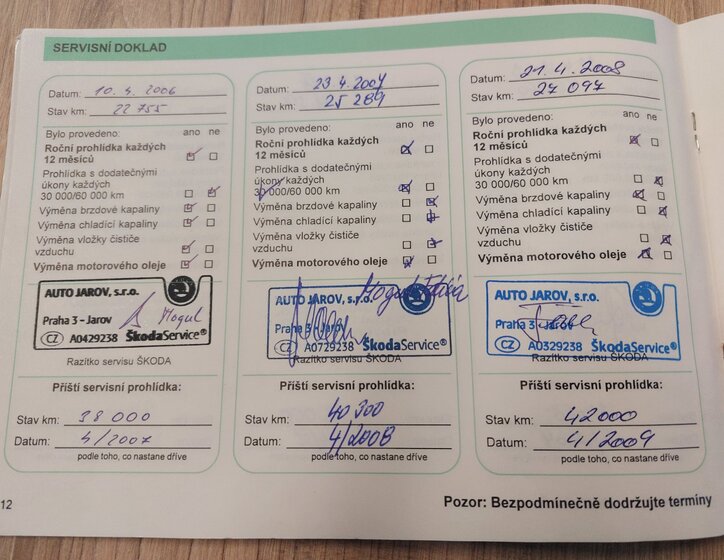 SERVISNÍ DOKLAD
Datum: 10.4.2006
Stav km: 22 755
Bylo provedeno: ano ne
Roční prohlídka každých
12 měsíců
Prohlídka s dodatečnými
úkony každých
30 000/60 000 km
Výměna brzdové kapaliny
Výměna chladící kapaliny
Výměna vložky čističe
vzduchu
Výměna motorového oleje
AUTO JAROV, s.r.o.
Praha 3 - Jarov
Mogul
CZ A0429238 ŠkodaService®
Razítko servisu ŠKODA
Příští servisní prohlídka:
Stav km: 38 000
Datum: 4/2007
podle toho, co nastane dříve
Datum: 23.4.2007
Stav km: 25 289
Bylo provedeno: ano ne
Roční prohlídka každých
12 měsíců
Prohlídka s dodatečnými
úkony každých
30 000/60 000 km
Výměna brzdové kapaliny
Výměna chladící kapaliny
Výměna vložky čističe
vzduchu
Výměna motorového oleje
AUTO JAROV, s.r.o.
Mogul
Praha 3 - Jarov
CZ A0729238 ŠkodaService®
Razítko servisu ŠKODA
Příští servisní prohlídka:
Stav km: 40 300
Datum: 4/2008
podle toho, co nastane dříve
Datum: 21.4.2008
Stav km: 27 097
Bylo provedeno: ano ne
Roční prohlídka každých
12 měsíců
Prohlídka s dodatečnými
úkony každých
30 000/60 000 km
Výměna brzdové kapaliny
Výměna chladící kapaliny
Výměna vložky čističe
vzduchu
Výměna motorového oleje
AUTO JAROV, s.r.o.
Praha 3 - Jarov
CZ A0329238 ŠkodaService®
Razítko servisu ŠKODA
Příští servisní prohlídka:
Stav km: 42000
Datum: 4/2009
podle toho, co nastane dříve
12
Pozor: Bezpodmínečně dodržujte termíny